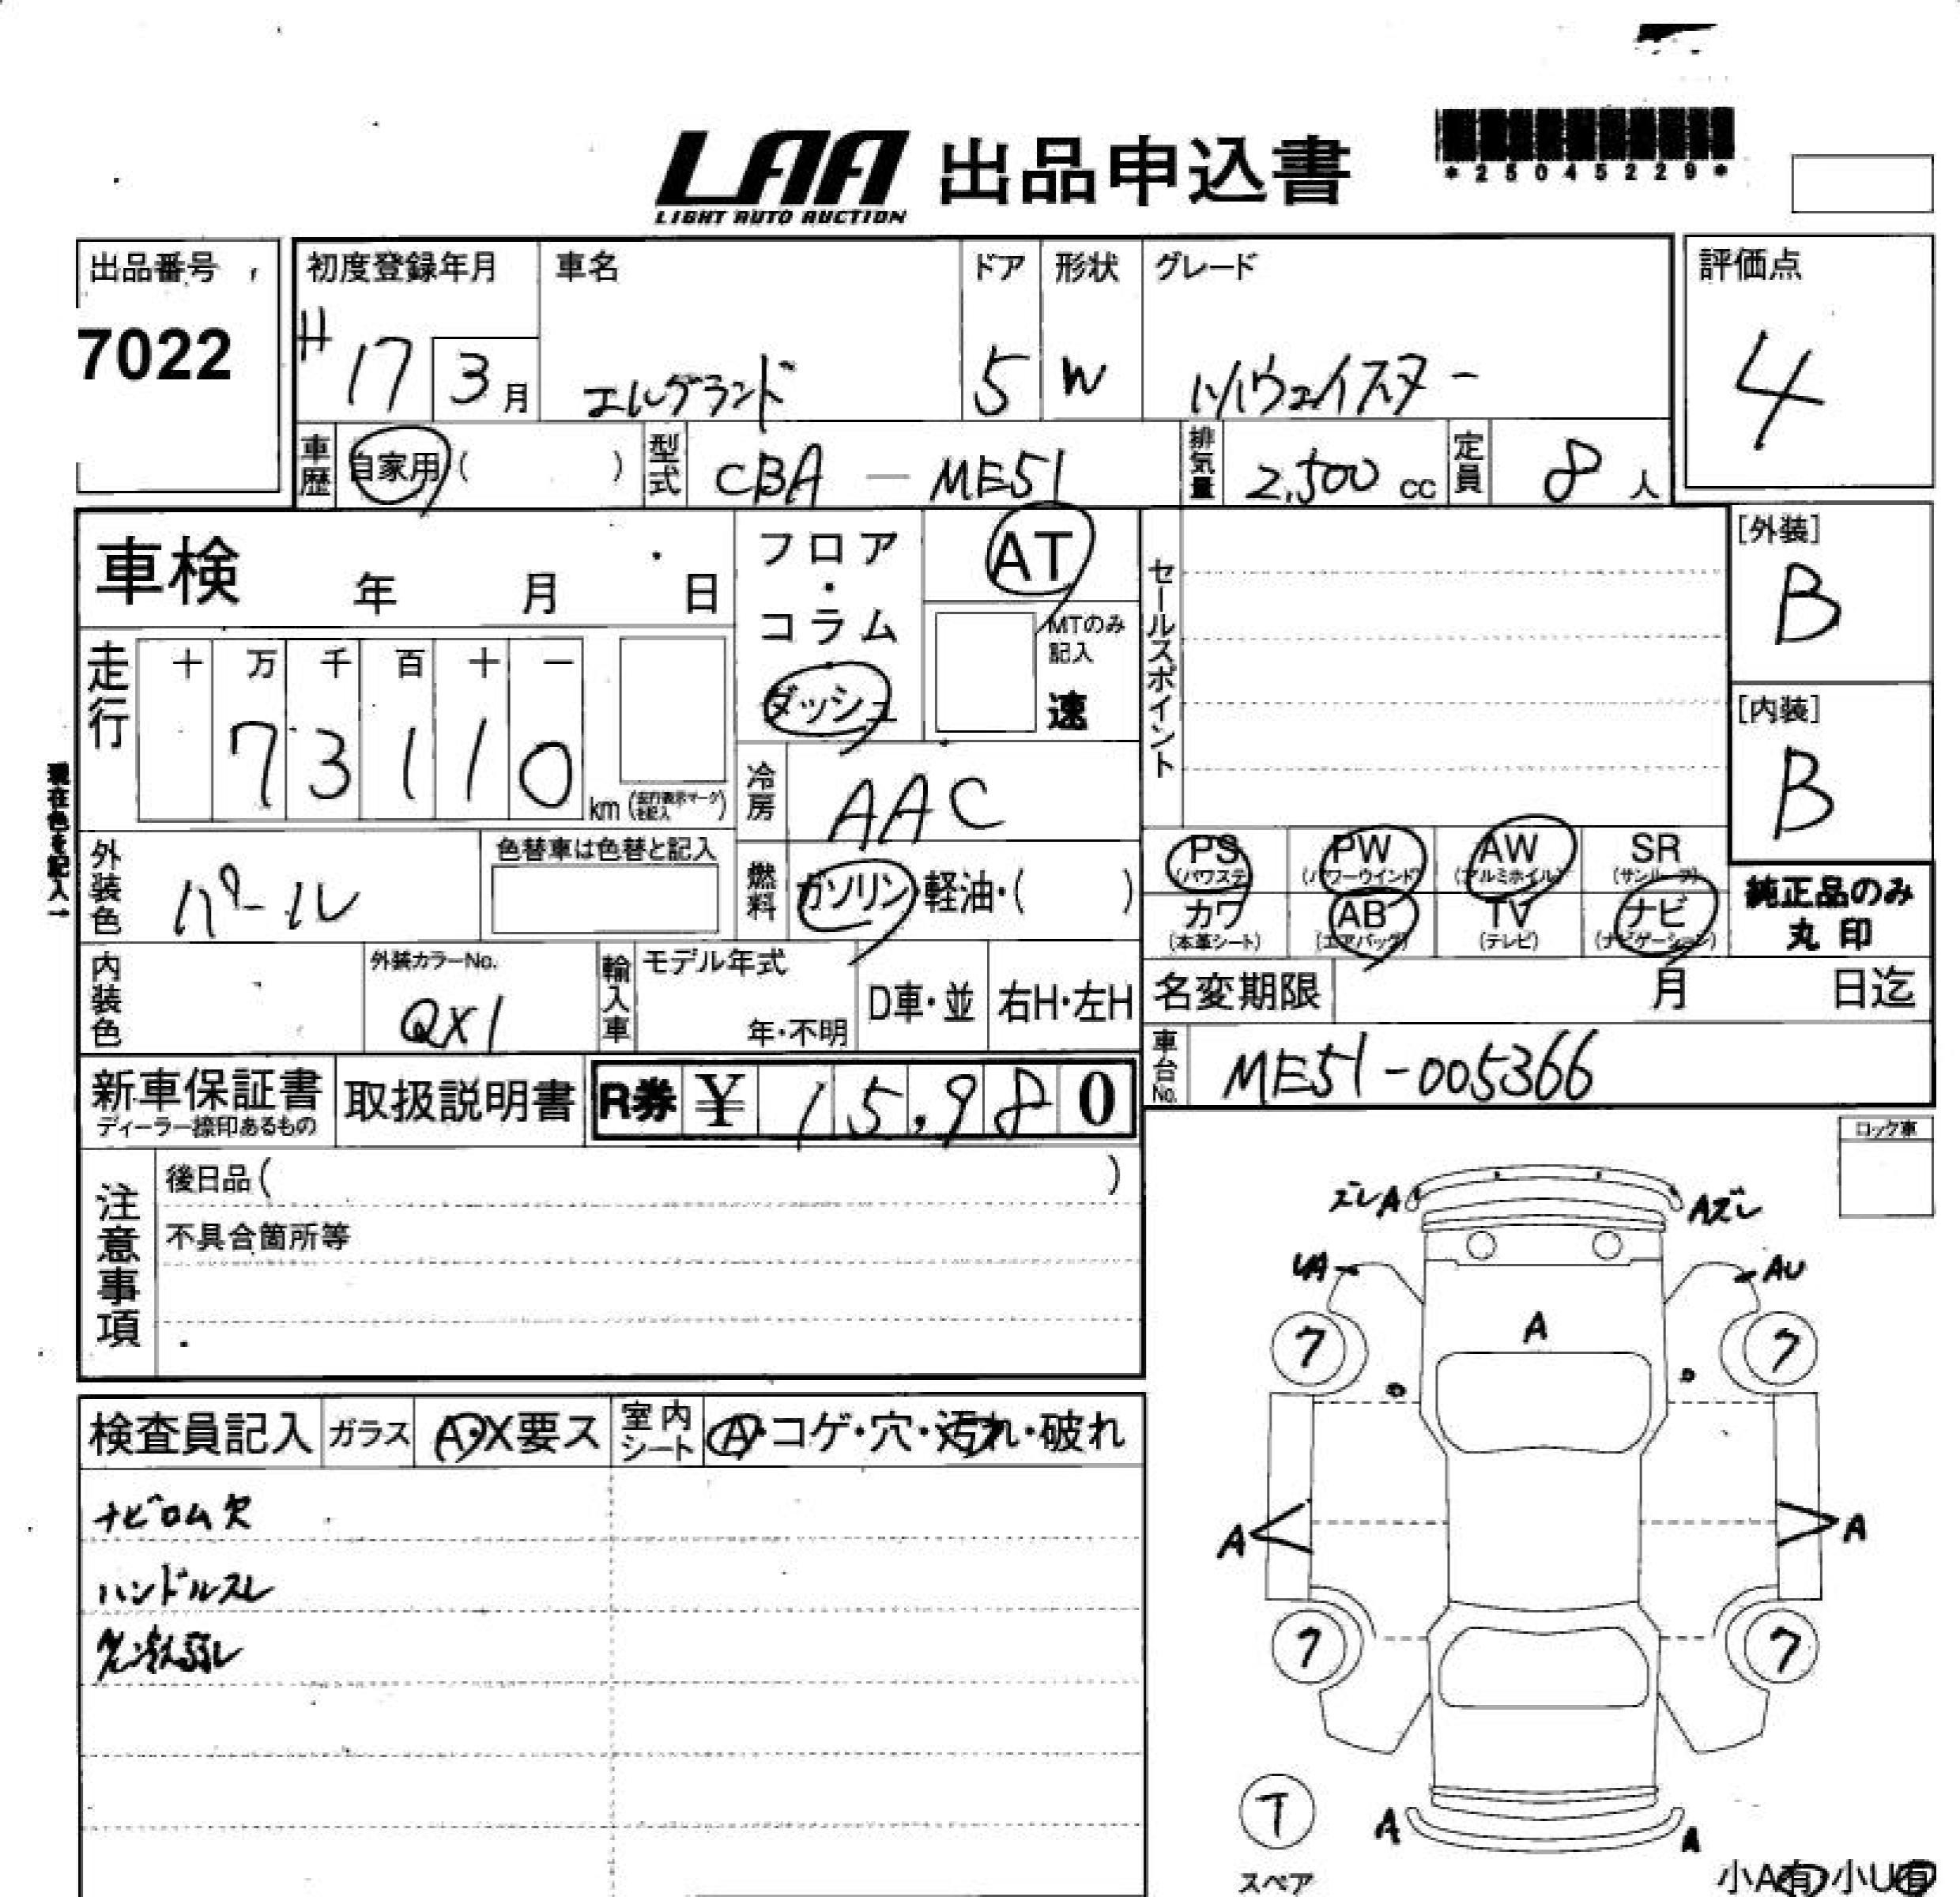 LAA 出品申込書
LIGHT AUTO AUCTION
*25045229*
出品番号
7022
初度登録年月 車名 ドア 形状 グレード
H17 3月 エルグランド 5 W ハイウェイスター
評価点
4
車歴 自家用( ) 型式 CBA-ME51 排気量 2,500cc 定員 8人
車検 年 月 日
フロア・コラム
ダッシュ
AT
MTのみ記入
速
セールスポイント
[外装]
B
[内装]
B
走行 十 万 千 百 十 一
73110 km(走行表示マークを記入)
冷房 AAC
現在色を記入→
外装色 パール
色替車は色替と記入
燃料 ガソリン・軽油・( )
PS PW AW SR
(パワステ) (パワーウインド) (アルミホイル) (サンルーフ)
カワ AB TV ナビ
(本革シート) (エアバッグ) (テレビ) (ナビゲーション)
純正品のみ
丸印
内装色
外装カラーNo.
QX1
輸入車 モデル年式
年・不明
D車・並 右H・左H
名変期限 月 日迄
車台No. ME51-005366
新車保証書
ディーラー捺印あるもの
取扱説明書
R券 ¥15,980
ロック車
注意事項
後日品( )
不具合箇所等
検査員記入 ガラス A・X要ス 室内シート A・コゲ・穴・汚れ・破れ
ナビロム欠
ハンドルスレ
ズレA Aズレ
UA AU
A
7 7
A A
7 7
T
スペア
A A
小A有 小U有